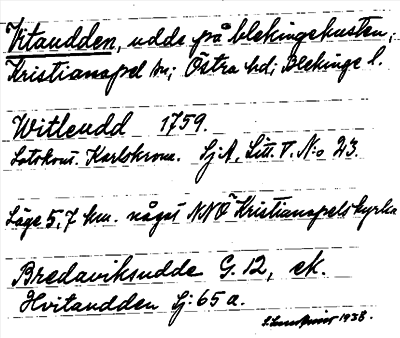 Vitaudden, udde på blekingekusten;
Kristianopel sn; Östra hd; Blekinge l.
Witleudd 1759.
Lotskont. Karlskrona. Sj.A, Litt. V. N:o 23.
Läge 5,7 km. något NNÖ Kristianopels kyrka
Bredaviksudde G. 12, ek.
Hvitaudden Sj: 65 a.
1938.